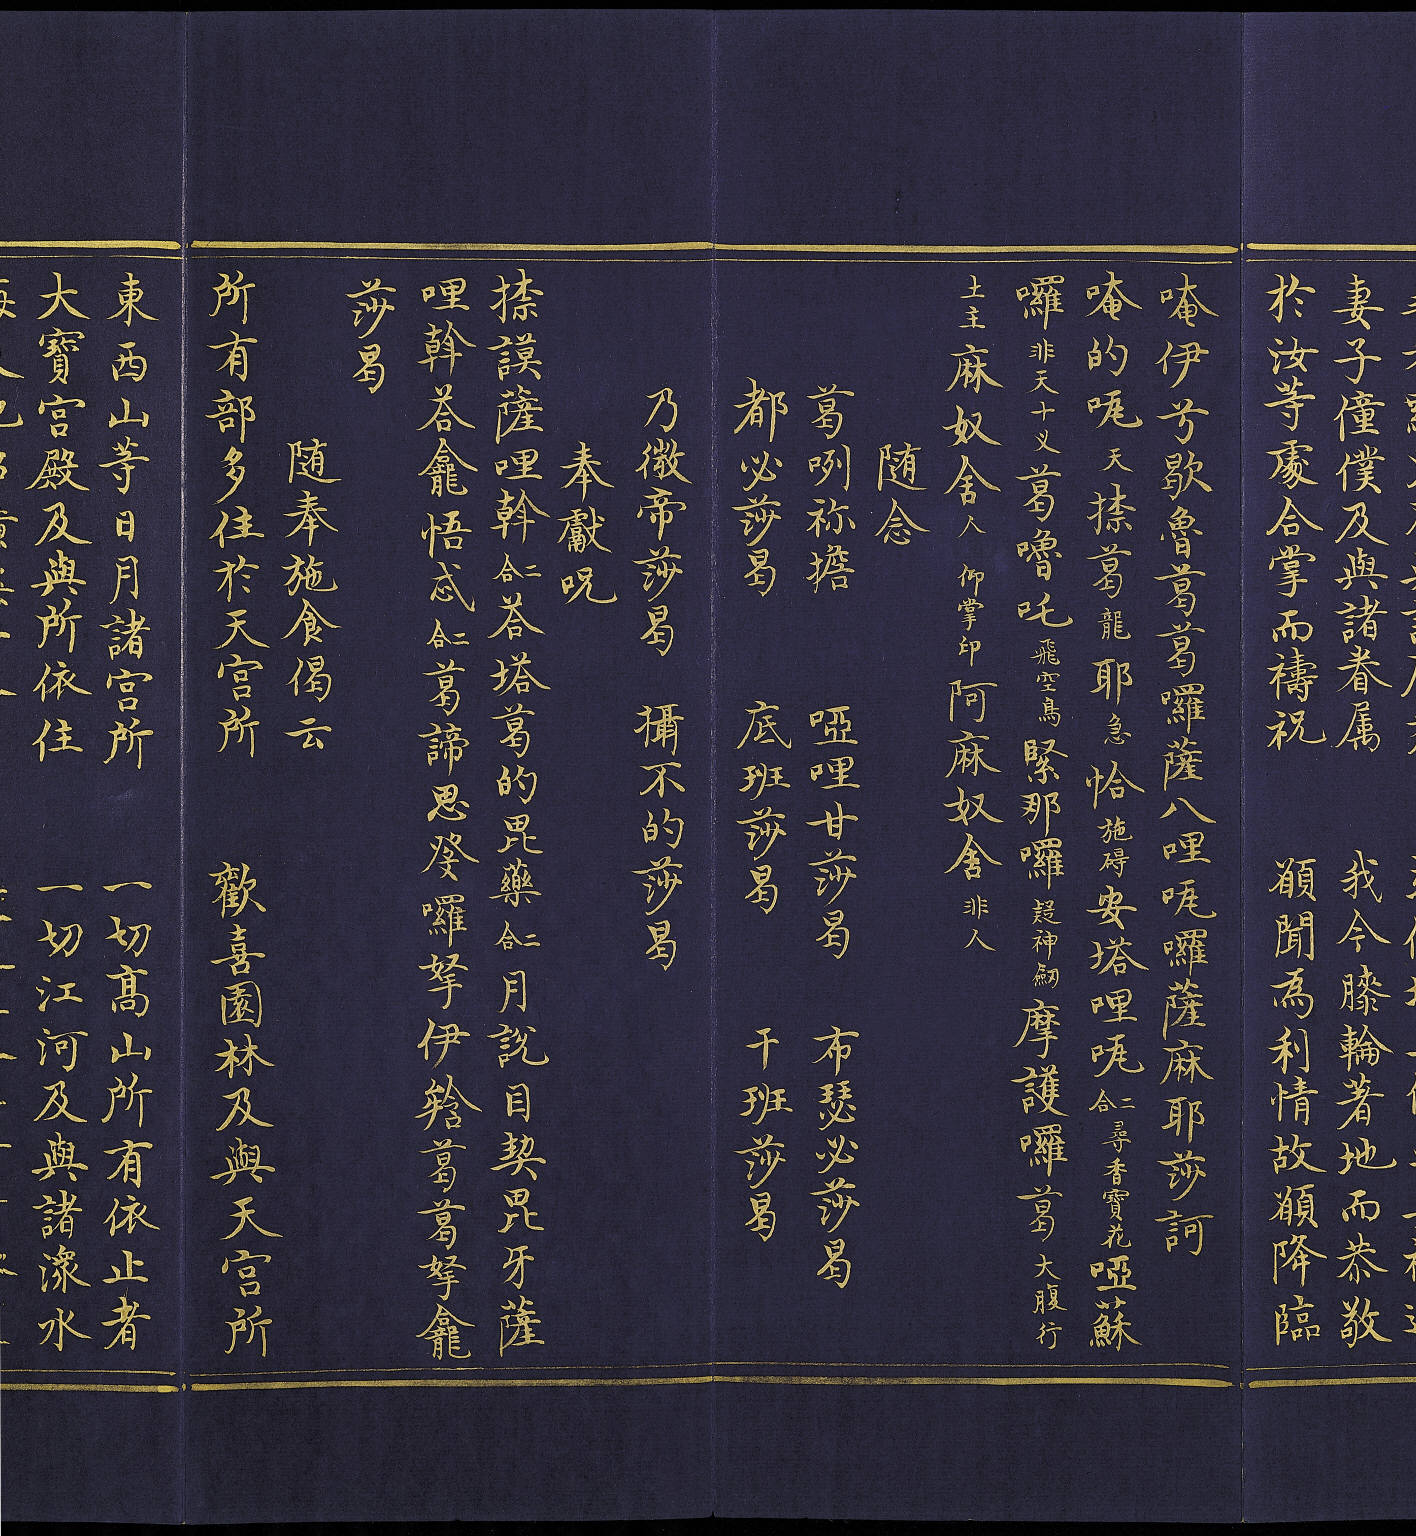 妻子僮僕及與諸眷属　我今膝輪著地而恭敬
於汝䓁處合掌而禱祝　願聞為利情故願降臨
唵伊兮歇魯葛葛囉薩八哩㖠囉薩麻耶莎訶
唵的㖠天捺葛龍耶急恰施碍安塔哩㖠二合尋香寶花啞蘇
囉非天十义葛嚕吒飛空鳥緊那囉疑神劒摩護囉葛大腹行
土主麻奴舍人仰掌印阿麻奴舍非人
随念
葛咧祢擔　啞哩甘莎曷　布瑟必莎曷
都必莎曷　底班莎曷　干班莎曷
乃微帝莎曷　攝不的莎曷
奉獻呪
捺謨薩哩斡二合荅塔葛的毘藥二合月說目契毘牙薩
哩斡荅龕悟忒二合葛諦思癹囉拏伊𥿊葛葛拏龕
莎曷
随奉施食偈云
所有部多住於天宮所　歡喜園林及與天宮所
東西山䓁日月諸宮所　一切髙山所有依止者
大寶宮殿及與所依住　一切江河及與諸潀水